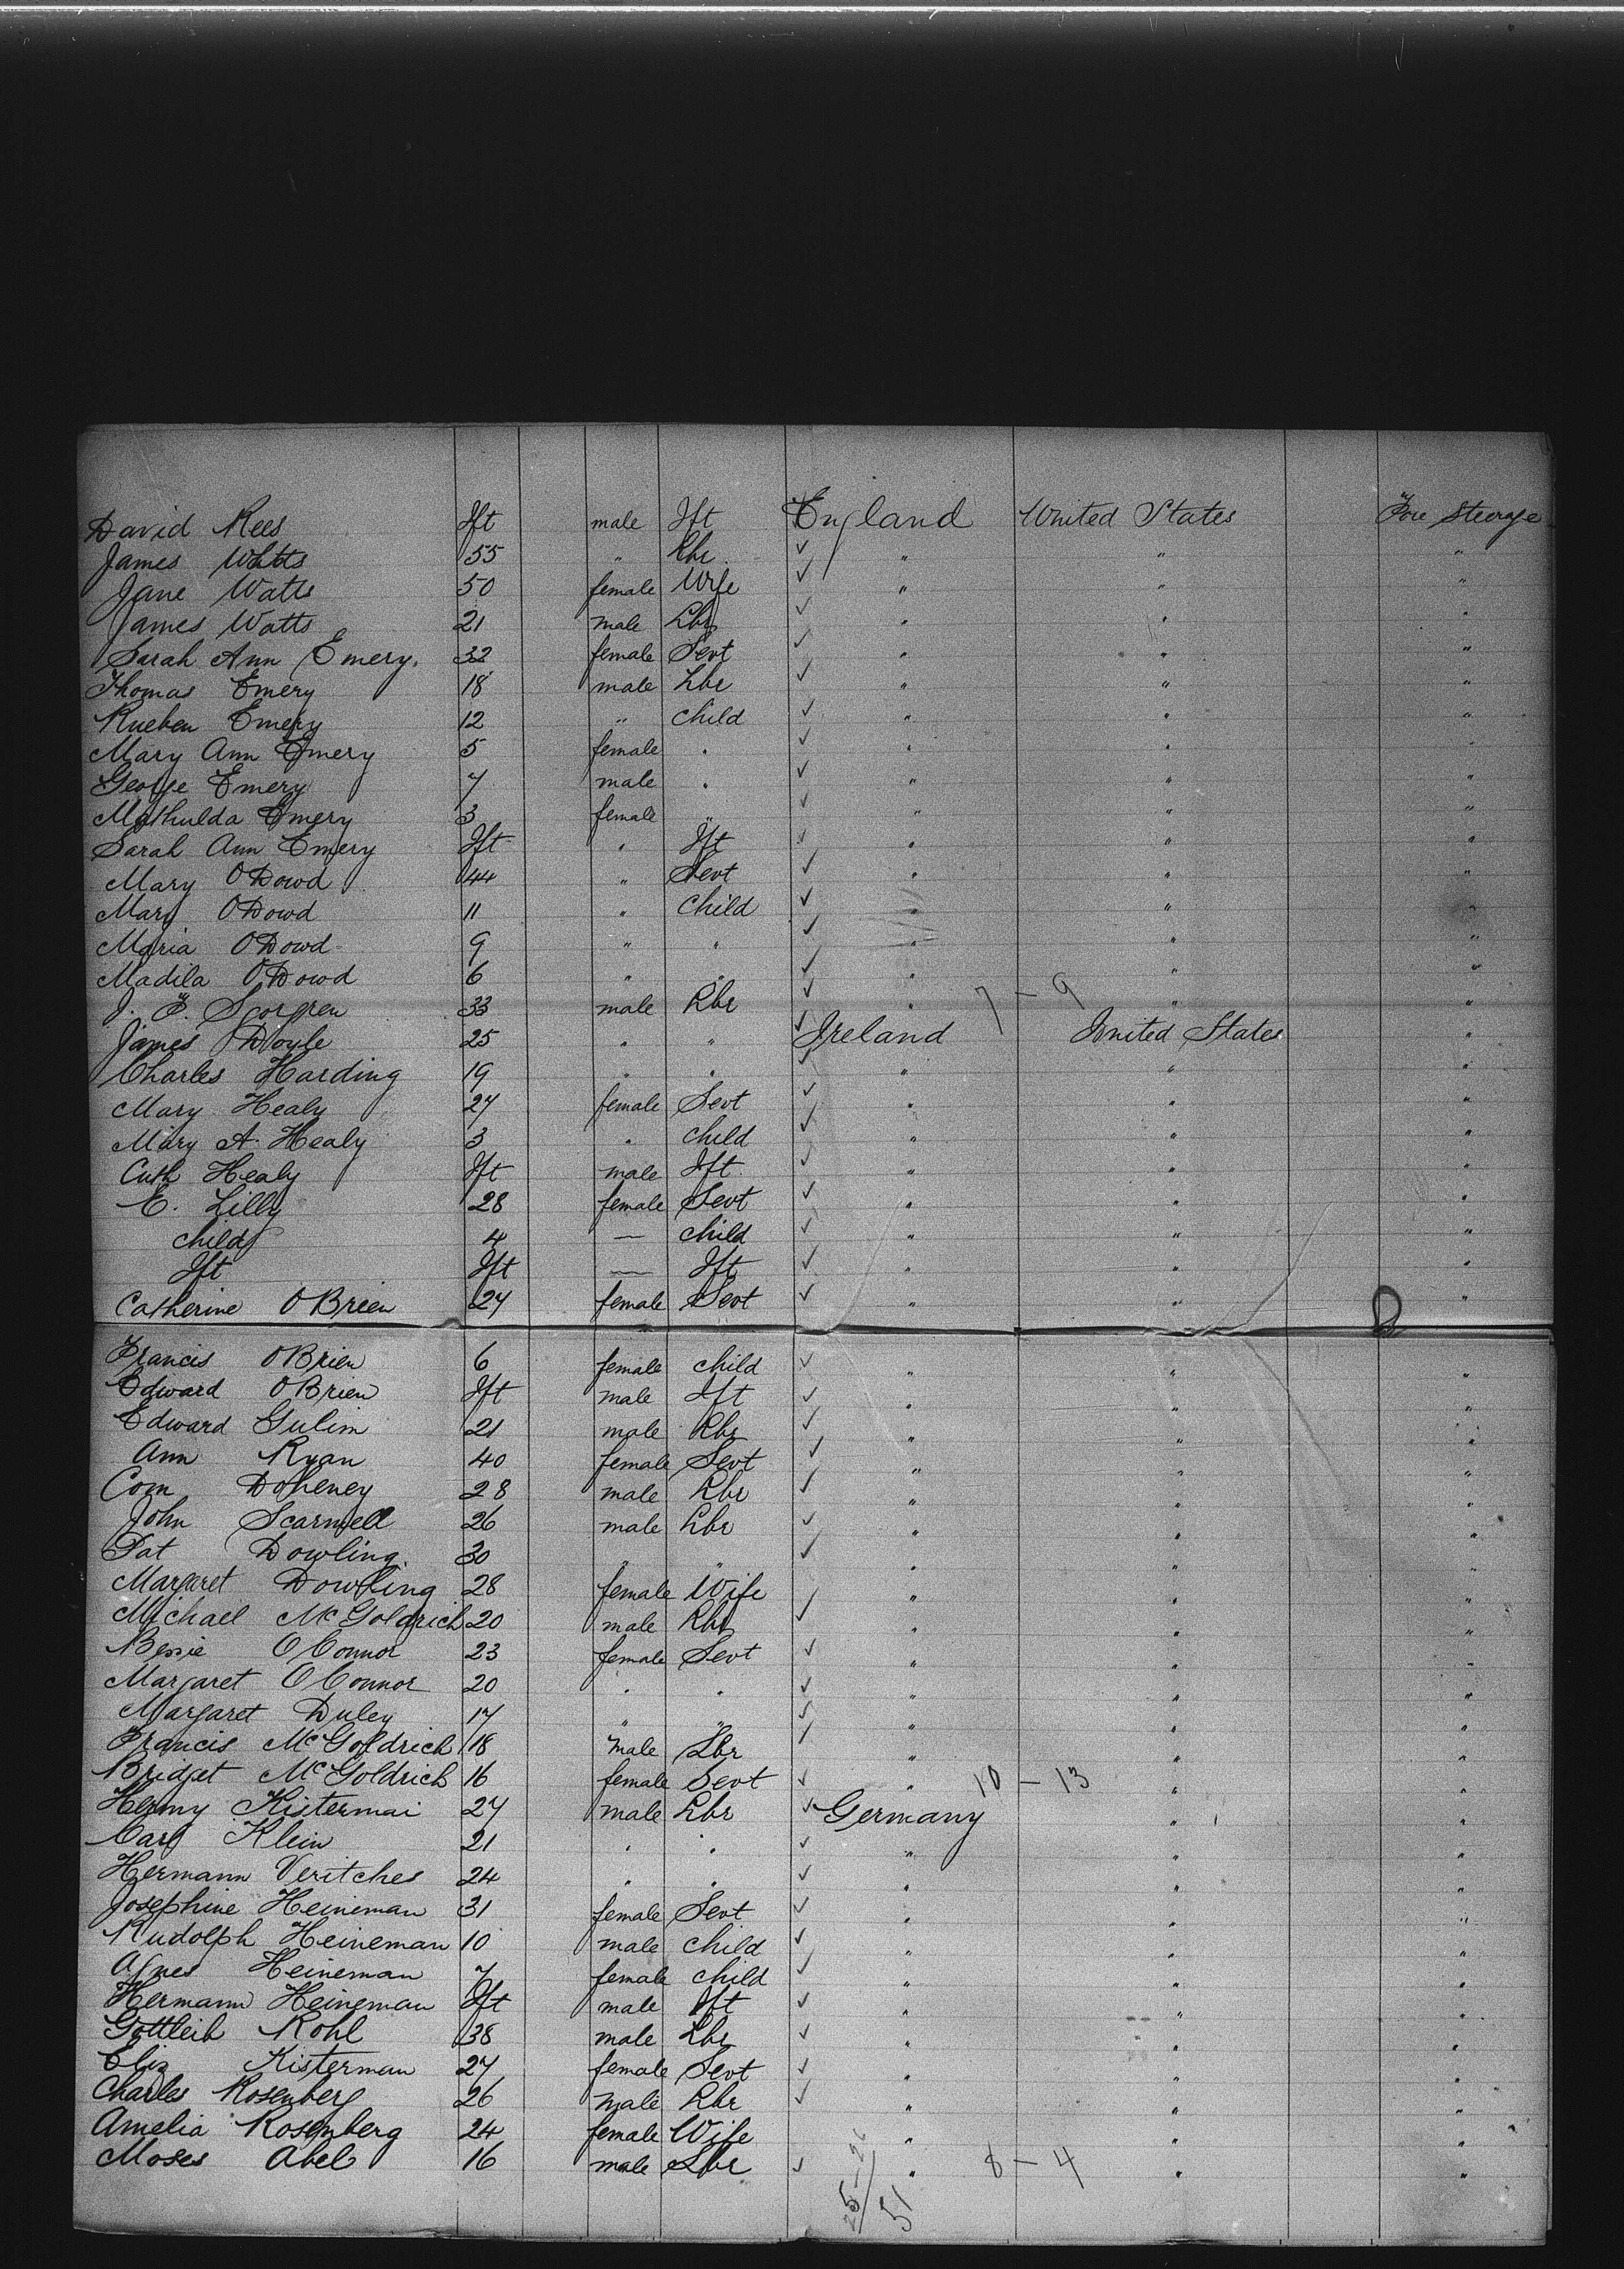 David Rees Ift male Ift England United States Fore Steerage
James Watts 55 " Lbr ✓ " " "
Jane Watts 50 female Wife ✓ " " "
James Watts 21 male Lbr ✓ " " "
Sarah Ann Emery. 32 female Sevt ✓ " " "
Thomas Emery 18 male Lbr ✓ " " "
Rueben Emery 12 " child ✓ " " "
Mary Ann Emery 5 female " ✓ " " "
George Emery 7 male " ✓ " " "
Mathulda Emery 3 female " ✓ " " "
Sarah Ann Emery Ift " Ift ✓ " " "
Mary ODowd 44 " Sevt ✓ " " "
Mary ODowd 11 " Child ✓ " " "
Maria ODowd 9 " " ✓ " " "
Madila ODowd 6 " " ✓ " " "
J. F. Scorgren 33 male Lbr ✓ " 7 - 9 " "
James Doyle 25 " " ✓ Ireland United States "
Charles Harding 19 " " ✓ " " "
Mary Healy 27 female Sevt ✓ " " "
Mary A. Healy 3 " child ✓ " " "
Cuth Healy Ift male Ift ✓ " " "
E. Lilly 28 female Sevt ✓ " " "
child 4 — child ✓ " " "
Ift Ift — Ift ✓ " " "
Catherine OBrien 27 female Sevt ✓ " " "
Francis OBrien 6 female child ✓ " " "
Edward OBrien Ift male Ift ✓ " " "
Edward Gulim 21 male Lbr ✓ " " "
Ann Ryan 40 female Sevt ✓ " " "
Com Doheney 28 male Lbr ✓ " " "
John Scarmell 26 male Lbr ✓ " " "
Pat Dowling. 30 " " ✓ " " "
Margaret Dowling 28 female Wife " " "
Michael McGoldrich 20 male Lbr ✓ " " "
Bessie OConnor 23 female Sevt ✓ " " "
Margaret OConnor 20 " " ✓ " " "
Margaret Duley 17 " " ✓ " " "
Francis McGoldrich 18 male Lbr ✓ " " "
Bridget McGoldrich 16 female Sevt ✓ " 10 - 13 " "
Henny Kistermai 27 male Lbr ✓ Germany " "
Carl Klein 21 " " ✓ " " "
Hermann Veritches 24 " " ✓ " " "
Josephine Heineman 31 female Sevt ✓ " " "
Rudolph Heineman 10 male child ✓ " " "
Agnes Heineman 7 female child ✓ " " "
Hermann Heineman Ift male Ift ✓ " " "
Gottleib Kohl 38 male Lbr ✓ " " "
Eliz Kisterman 27 female Sevt ✓ " " "
Charles Rosenberg 26 male Lbr ✓ " " "
Amelia Rosenberg 24 female Wife " " "
Moses Abel 16 male Lbr ✓ " 8 - 4 " "
25-26
51